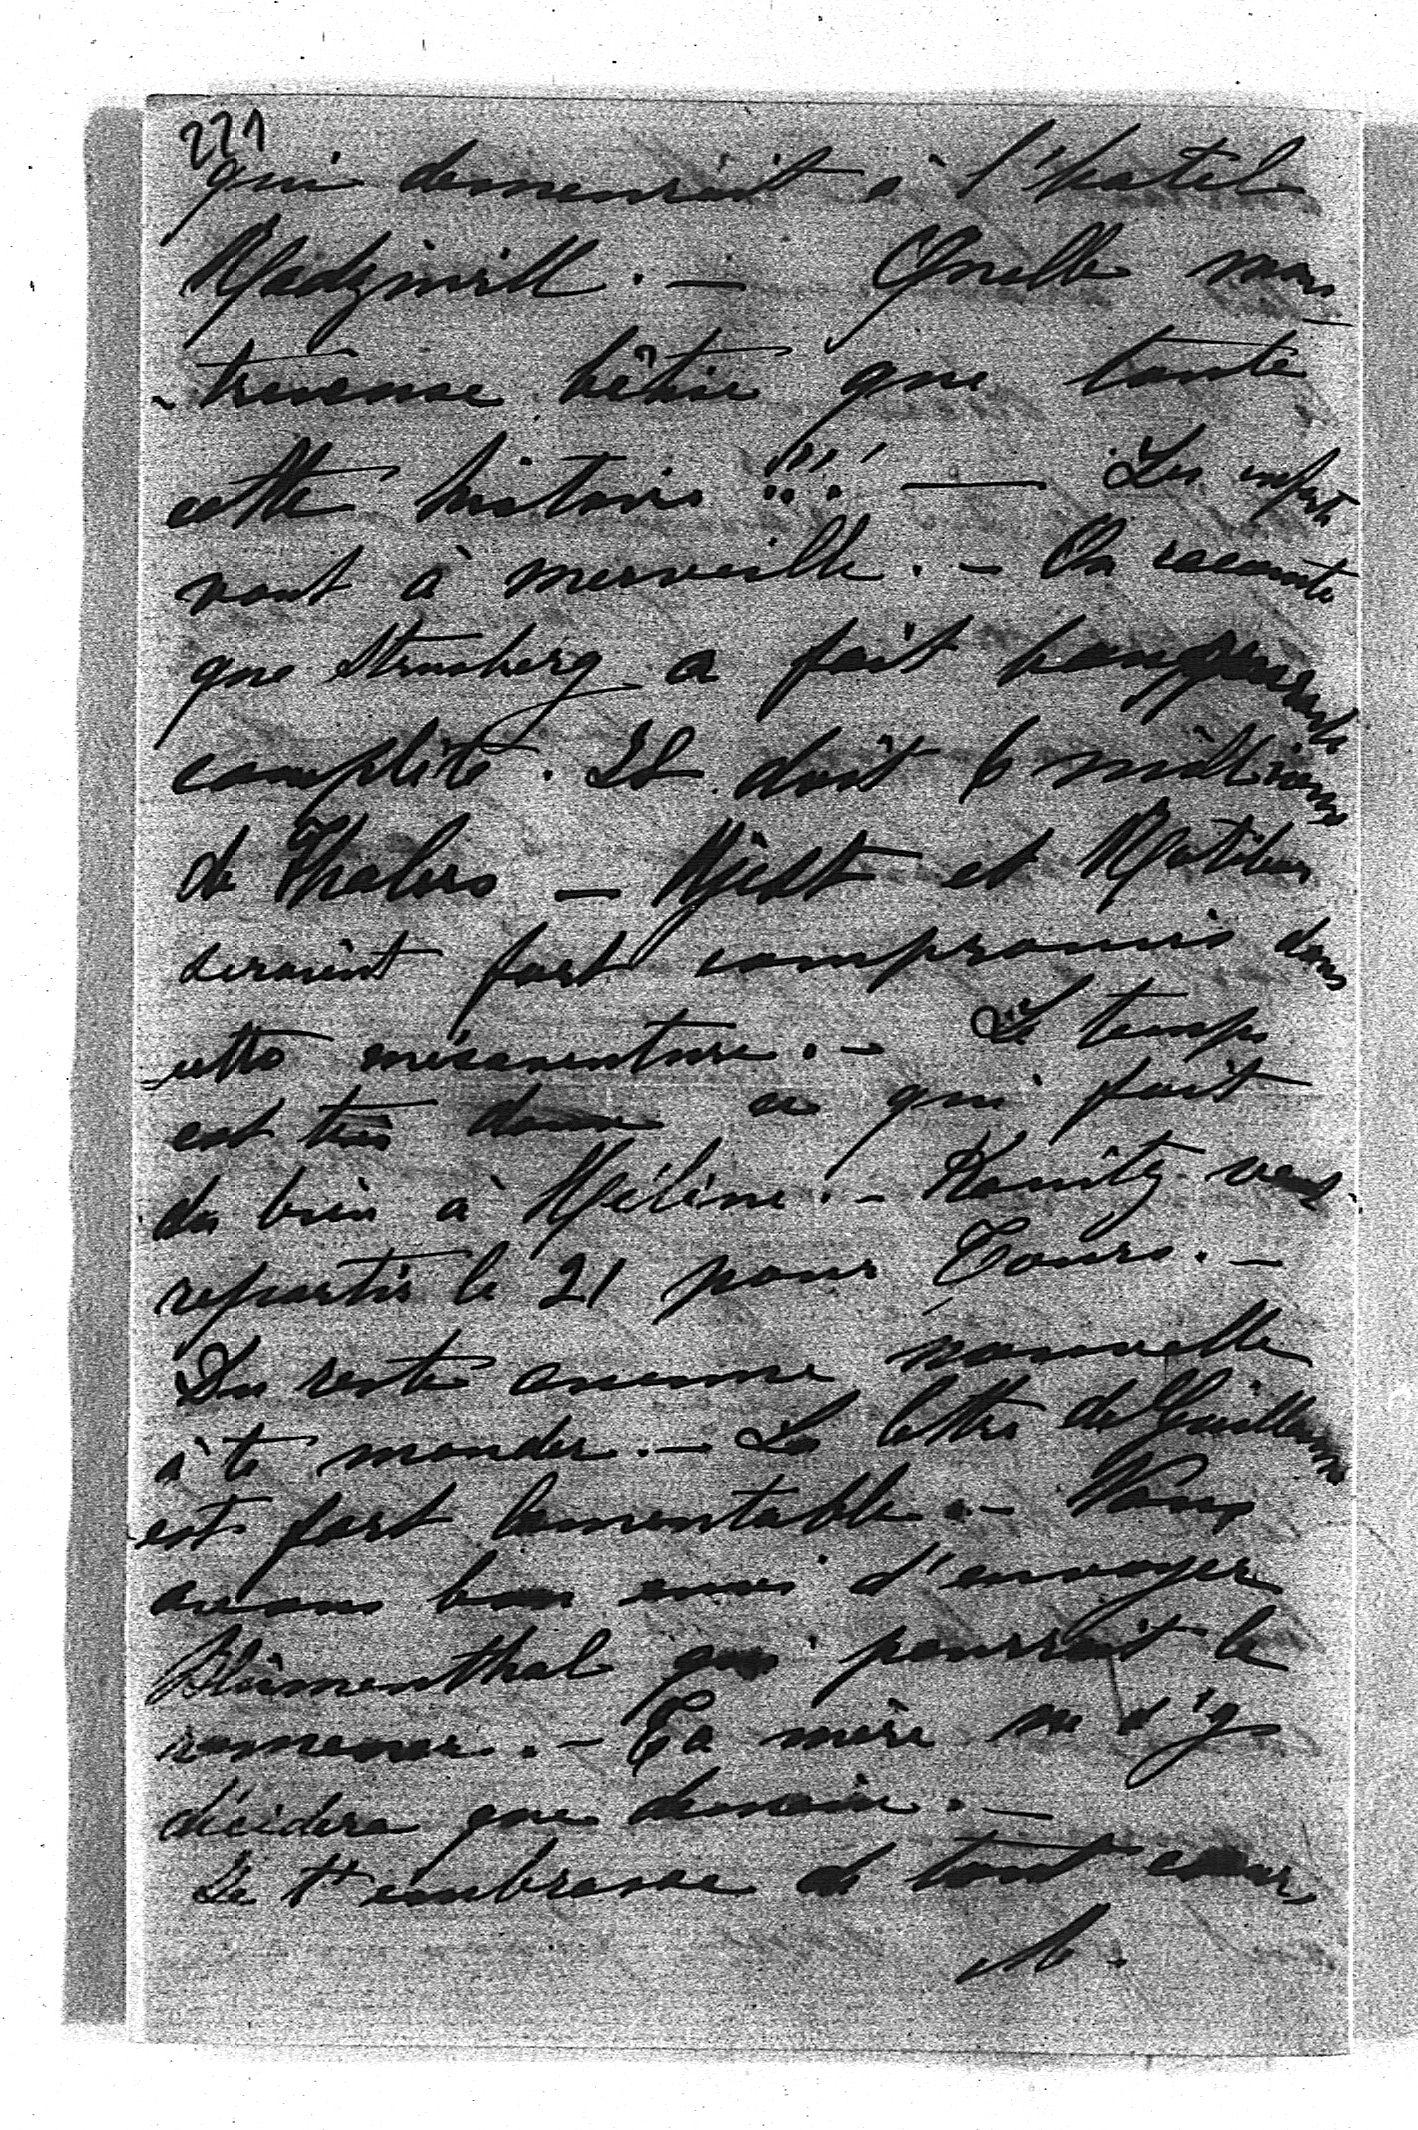 221
qui demeurait à l'hotel
Radziwill. — Quelle mons
-trueuse bêtise que toute
cette histoire !!! — Les enfants
vont à merveille. — On raconte
que Strusberg a fait banqueroute
complète. Il doit 6 millions
de Thalers — Ujest et Ratibor
seraient fort compromis dans
cette mésaventure. — Le temps
est très doux ce qui fait
du bien à Hélène. — Kanitz veut
repartir le 21 pour Tours. —
Du reste aucune nouvelle
à te mander. — La lettre de Guillaume
est fort lamentable. — Nous
avons bien envie d'envoyer
Blumenthal qui pourrait le
ramener. — Ta mère ne s'y
décidera que demain. —
Je t'embrasse de tout cœur
M.